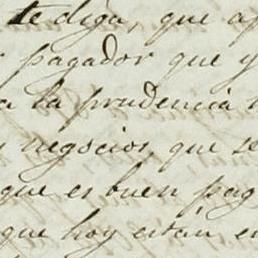 te diga, que ap
pagador que y
a la prudencia
negocios, que se
que es buen pag
que hoy están en